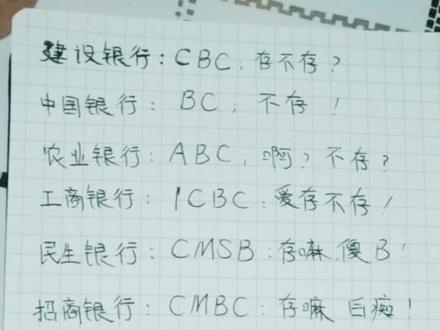 建设银行:CBC;存不存?
中国银行: BC; 不存 !
农业银行:ABC;啊?不存?
工商银行:ICBC:爱存不存!
民生银行:CMSB:存嘛,傻B!
招商银行:CMBC:存嘛 白痴!